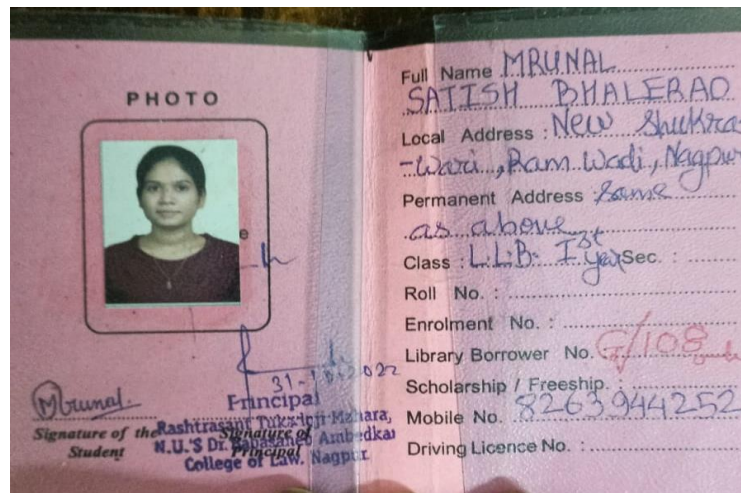 PHOTO
Mrunal.
Signature of the
Student
31-10-2022
Principal
Rashtrasant Tukadoji Mahara,
N.U.'S Dr. Babasaheb Ambedkar
College of Law. Nagpur.
Signature of
Principal
Full Name MRUNAL
SATISH BHALERAO
Local Address : New Shukra
-wari, Ram Wadi, Nagpur
Permanent Address Same
as above
Class : L.L.B. Ist year Sec. :
Roll No. :
Enrolment No. :
Library Borrower No. G/108
Scholarship / Freeship. :
Mobile No. 8263944252
Driving Licence No. :